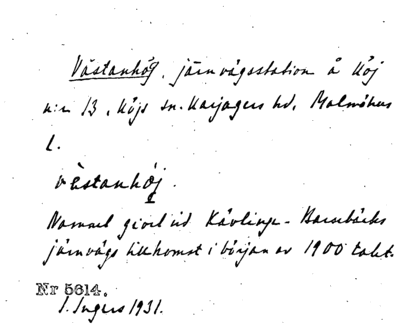 Västanhög, järnvägsstation å Hög
n:r 13, Högs sn. Harjagers hd, Malmöhus
l.
västanhöj.
Namnet givet vid Kävlinge - Barsebäcks
järnvägs tillkomst i början av 1900 talet.
Nr 5614.
I. Ingers 1931.